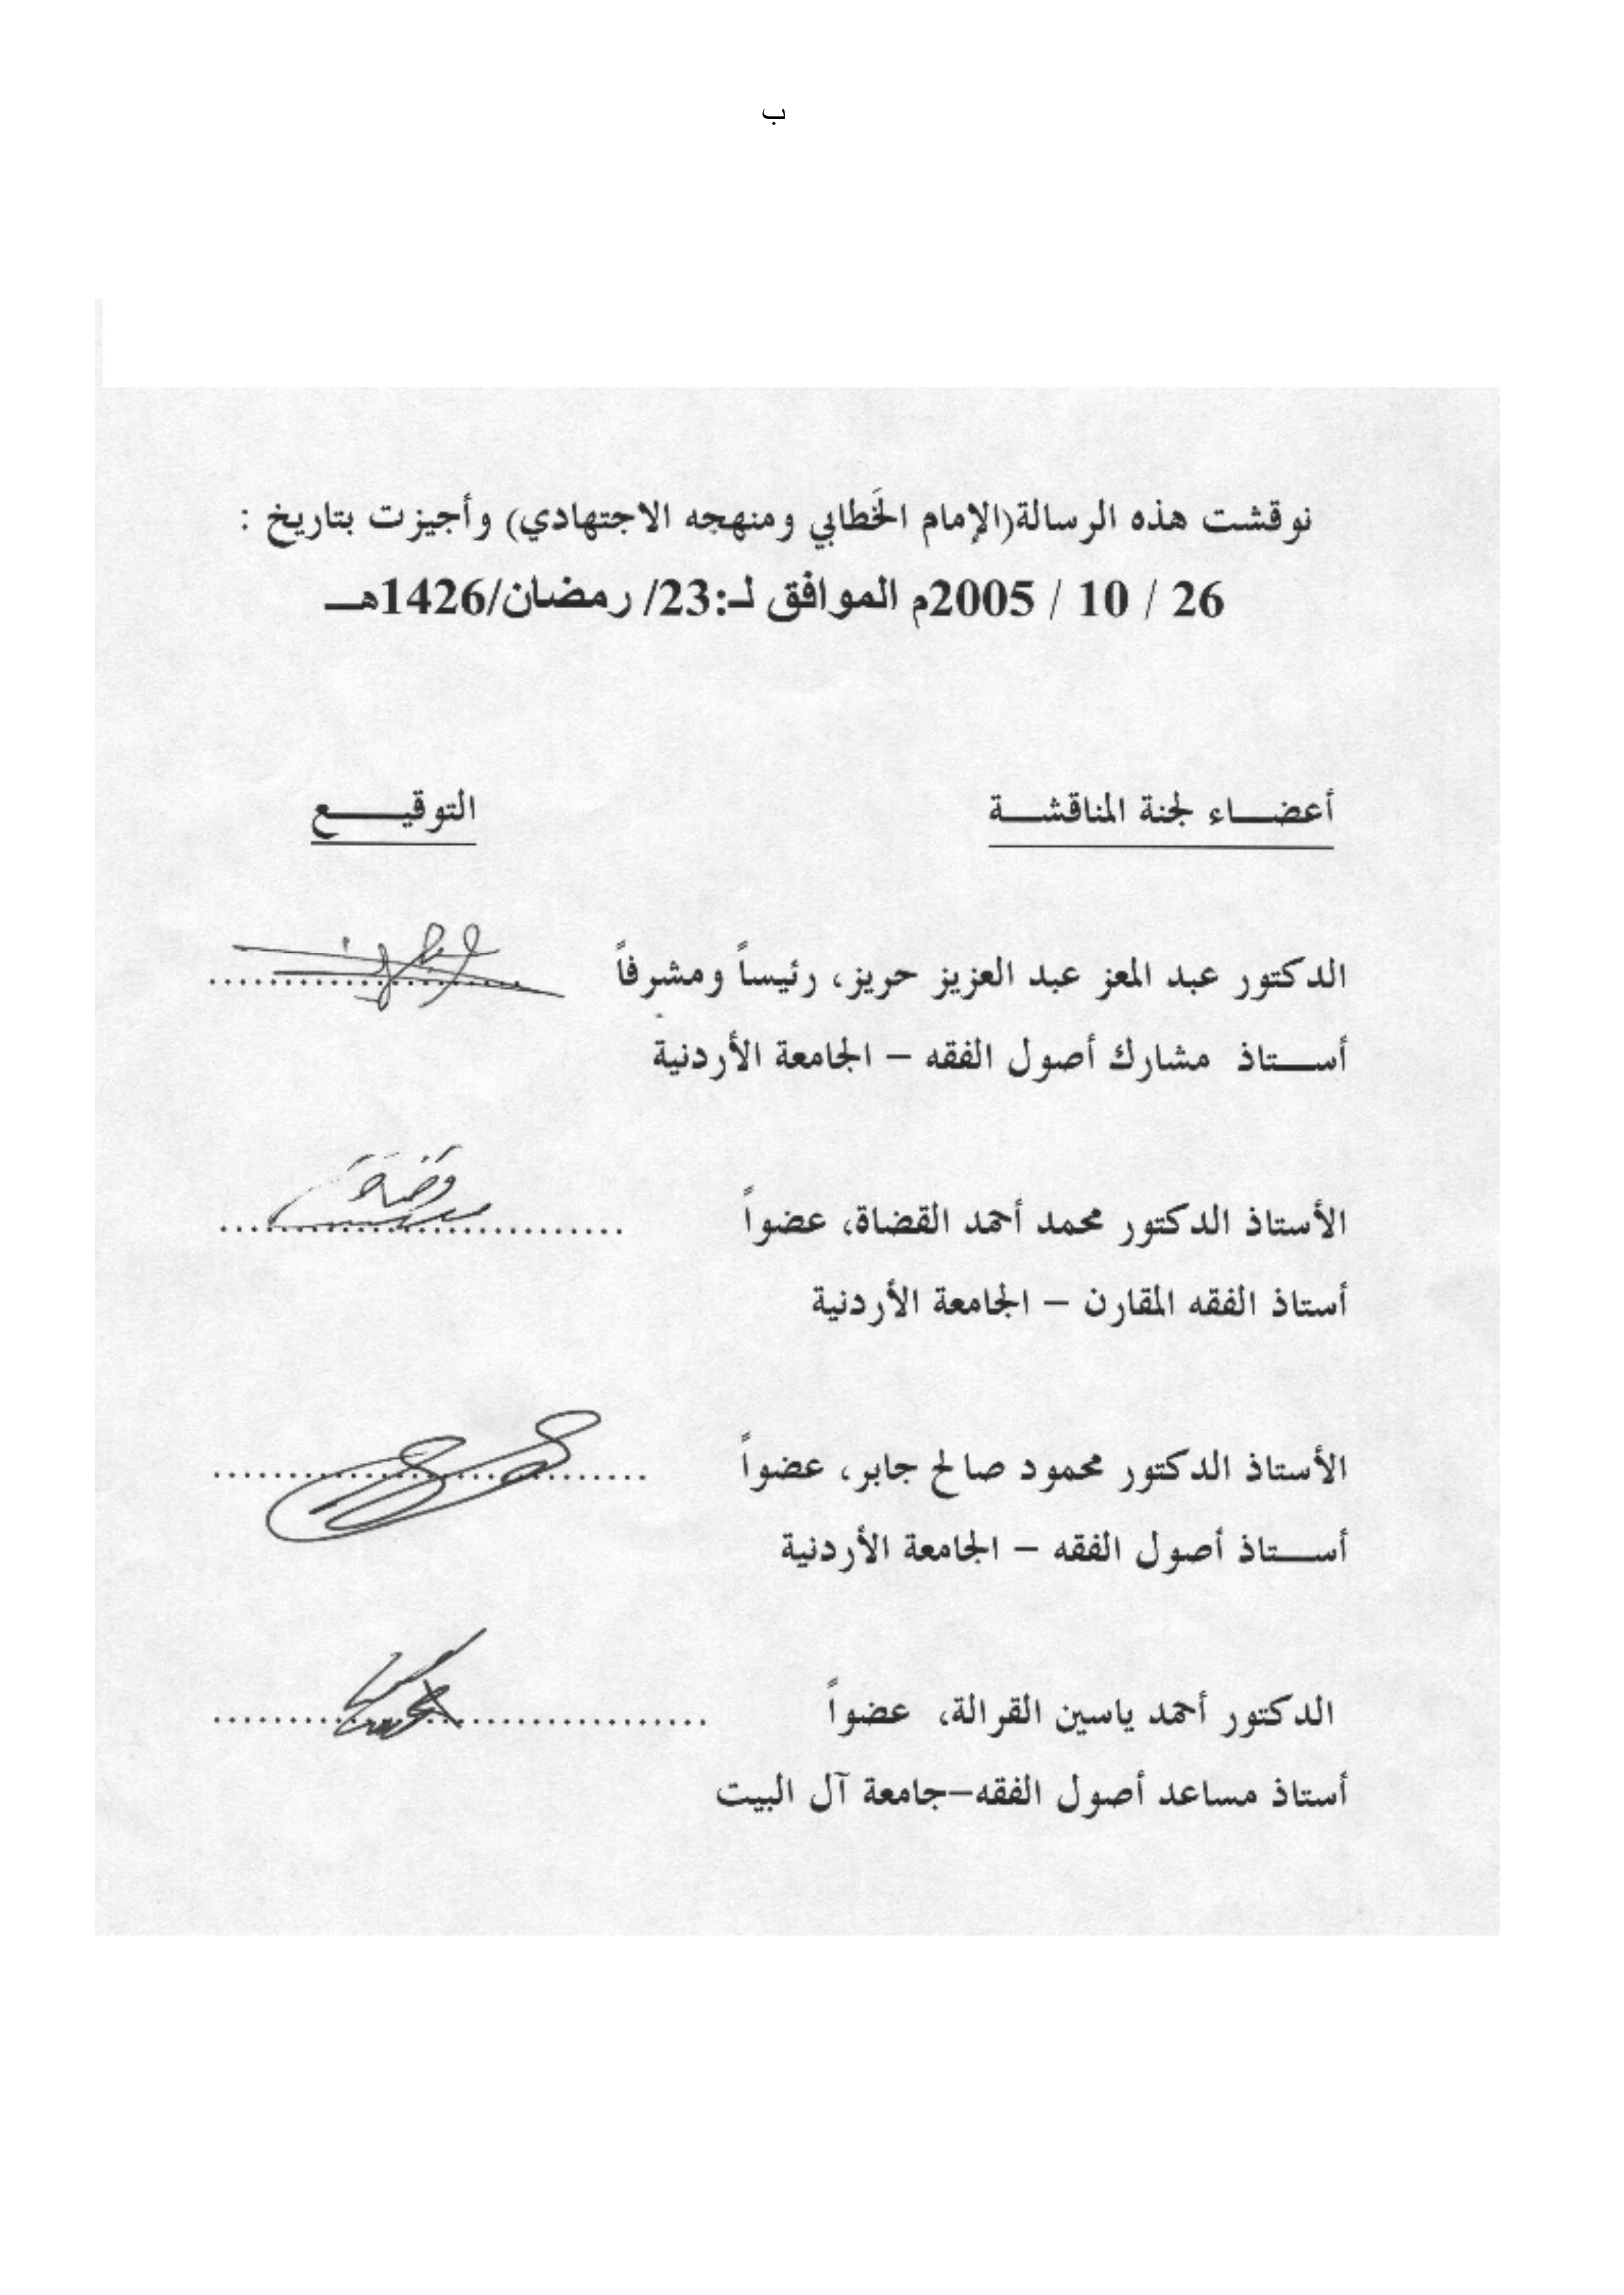 ب
نوقشت هذه الرسالة(الإمام الخَطابي ومنهجه الاجتهادي) وأجيزت بتاريخ :
26 / 10 / 2005م الموافق لـ:23/ رمضان/1426هـــ
أعضـــاء لجنة المناقشـــة
التوقيـــــع
الدكتور عبد المعز عبد العزيز حريز، رئيساً ومشرفاً ..........................
أســـتاذ مشارك أصول الفقه – الجامعة الأردنية
الأستاذ الدكتور محمد أحمد القضاة، عضواً ..........................
أستاذ الفقه المقارن – الجامعة الأردنية
الأستاذ الدكتور محمود صالح جابر، عضواً ..........................
أســـتاذ أصول الفقه – الجامعة الأردنية
الدكتور أحمد ياسين القرالة، عضواً ..........................
أستاذ مساعد أصول الفقه–جامعة آل البيت